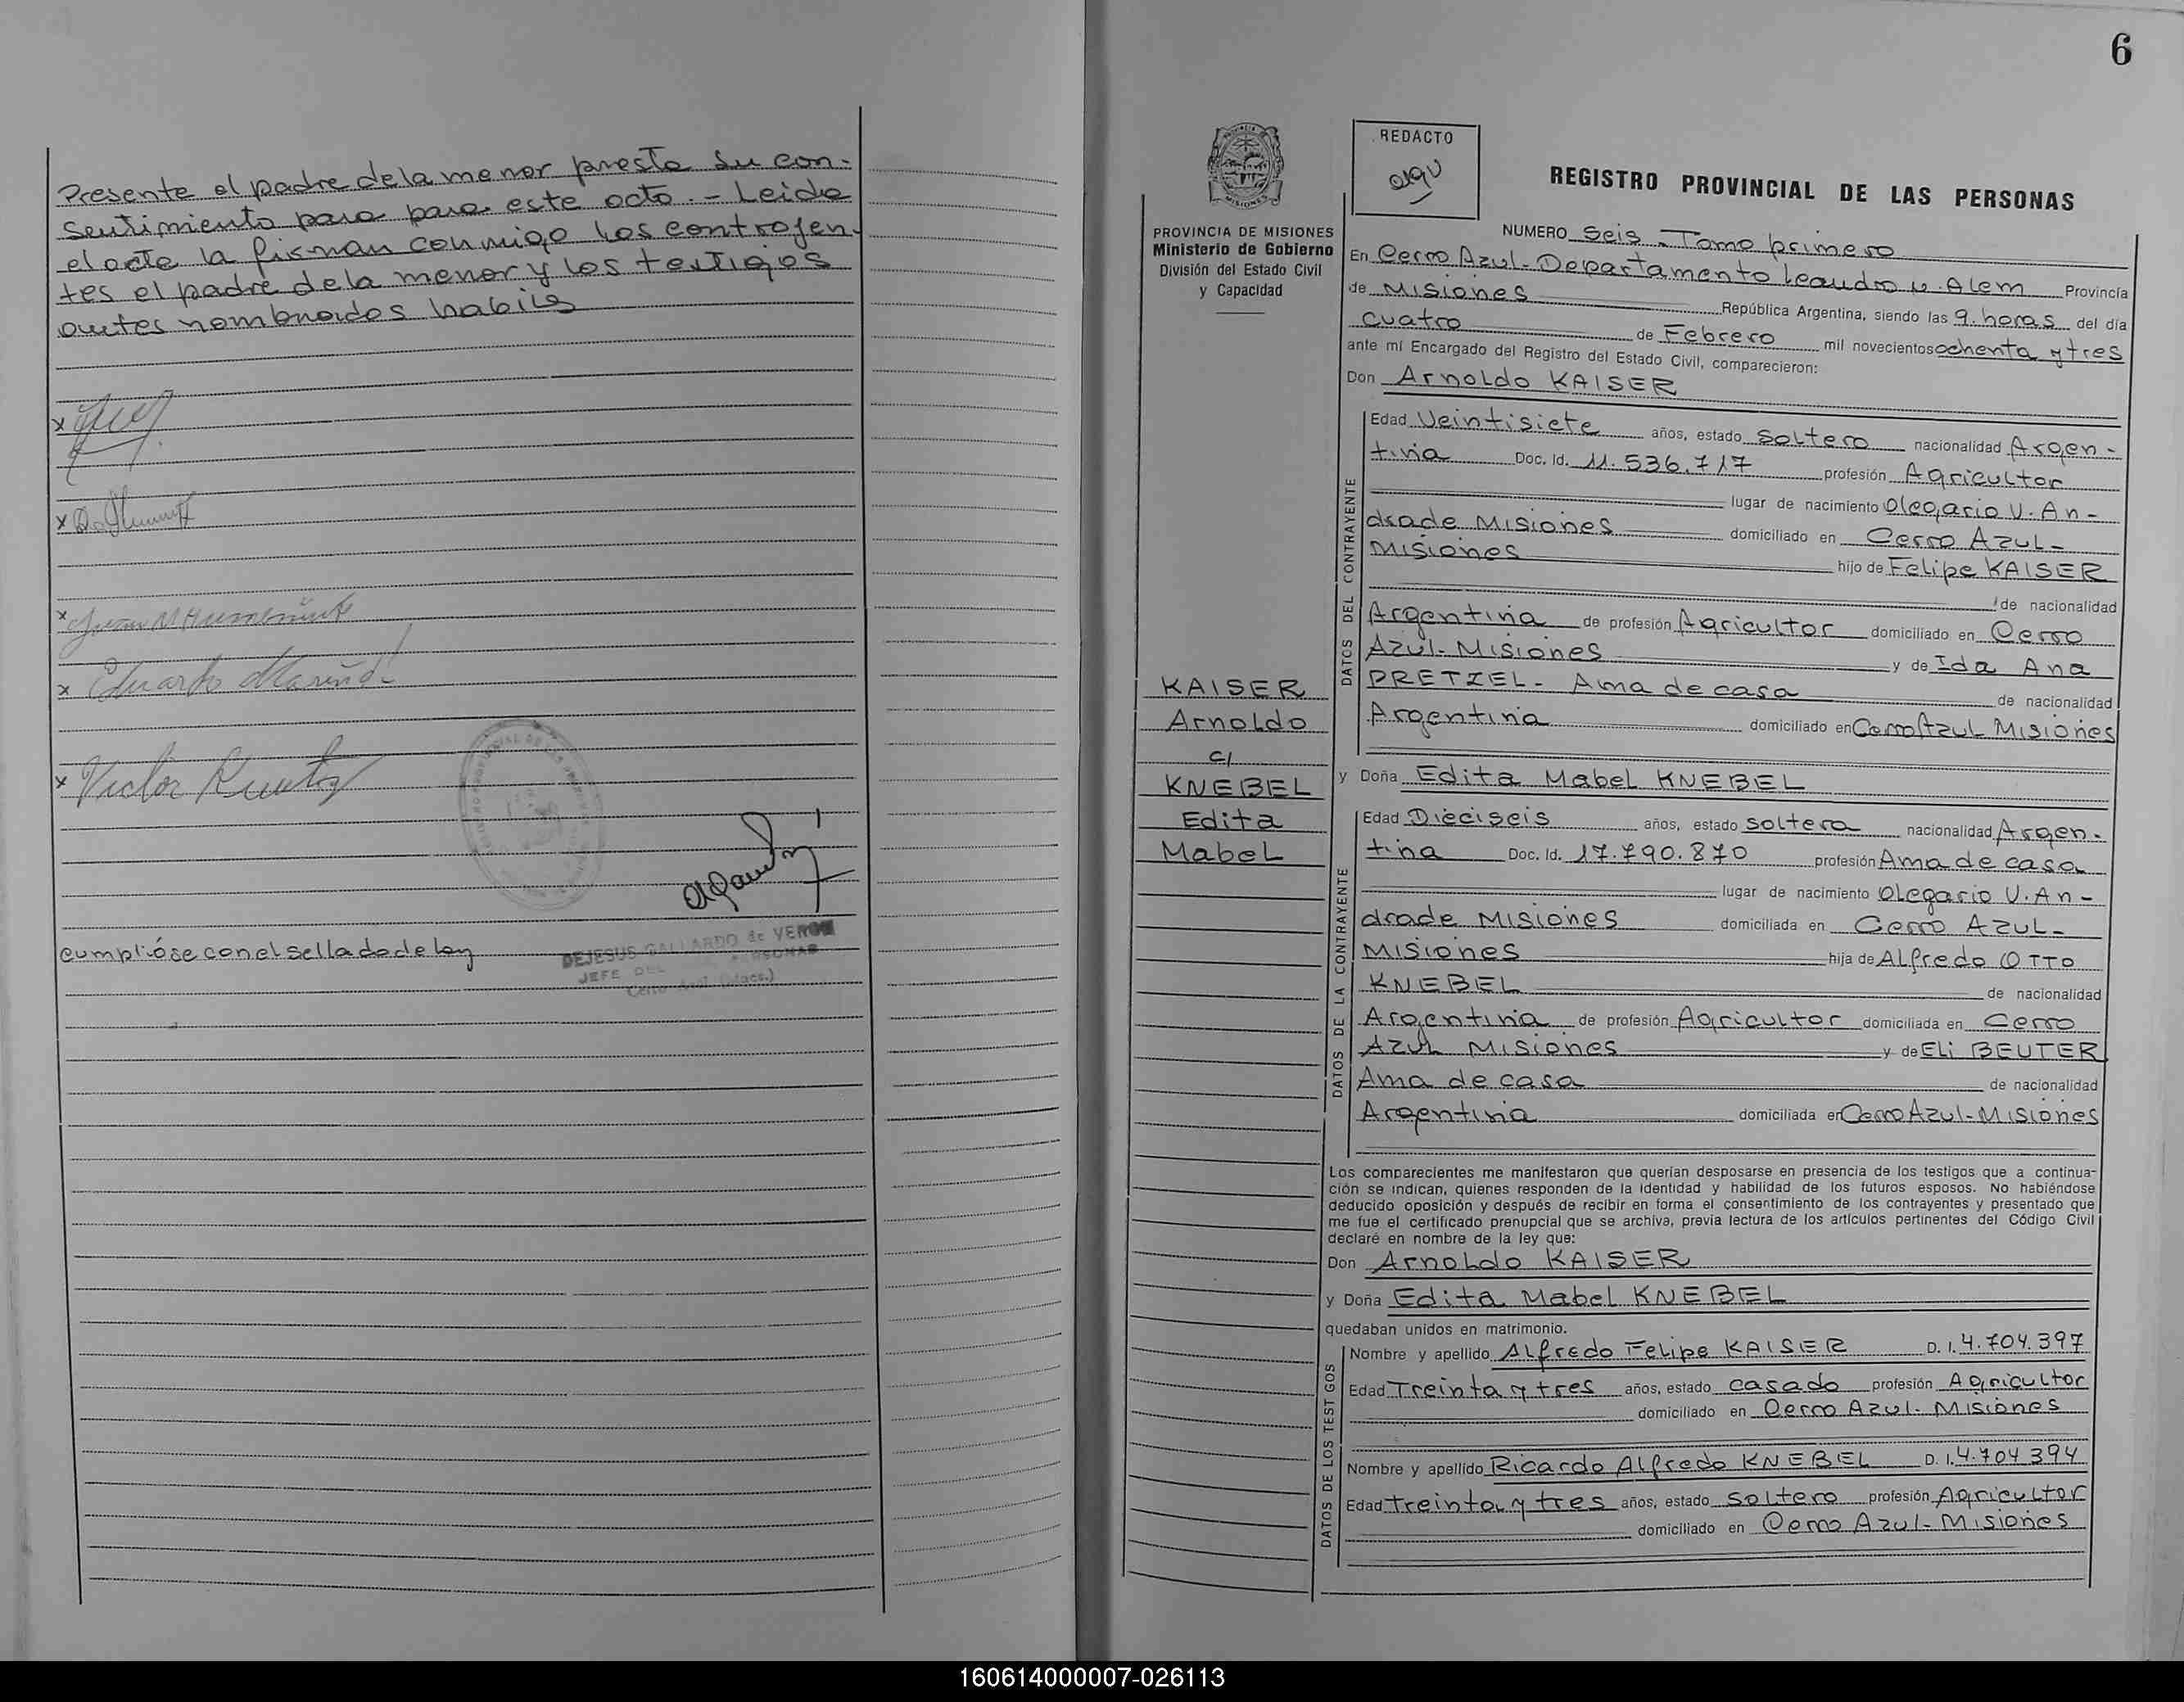 Presente el padre de la menor presta su con-
sentimiento para para este acto. - Leida
el acta la firman conmigo los contrayen-
tes el padre de la menor y los testigos
antes nombrados habiles
x
x
x
x Eduardo
x Victor
cumplióse con el sellado de ley
DEJESUS GALLARDO de VERON
JEFE DEL
Cerro Azul
6
REDACTO
REGISTRO PROVINCIAL DE LAS PERSONAS
PROVINCIA DE MISIONES
Ministerio de Gobierno
División del Estado Civil
y Capacidad
NUMERO Seis - Tomo primero
En Cerro Azul - Departamento Leandro N. Alem Provincia
de Misiones República Argentina, siendo las 9. horas del día
cuatro de Febrero mil novecientos ochenta y tres
ante mí Encargado del Registro del Estado Civil, comparecieron:
Don Arnoldo KAISER
DATOS DEL CONTRAYENTE
Edad Veintisiete años, estado soltero nacionalidad Argen-
tina Doc. Id. 11.536.717 profesión Agricultor
lugar de nacimiento Olegario V. An-
drade Misiones domiciliado en Cerro Azul-
Misiones hijo de Felipe KAISER
de nacionalidad
Argentina de profesión Agricultor domiciliado en Cerro
Azul- Misiones y de Ida Ana
PRETZEL- Ama de casa de nacionalidad
Argentina domiciliado en Cerro Azul Misiones
KAISER
Arnoldo
c/
KNEBEL
Edita
Mabel
y Doña Edita Mabel KNEBEL
DATOS DE LA CONTRAYENTE
Edad Dieciseis años, estado soltera nacionalidad Argen-
tina Doc. Id. 17.790.870 profesión Ama de casa
lugar de nacimiento Olegario V. An-
drade Misiones domiciliada en Cerro Azul-
Misiones hija de Alfredo OTTO
KNEBEL de nacionalidad
Argentina de profesión Agricultor domiciliada en Cerro
Azul Misiones y de Eli BEUTER
Ama de casa de nacionalidad
Argentina domiciliada en Cerro Azul-Misiones
Los comparecientes me manifestaron que querían desposarse en presencia de los testigos que a continua-
ción se indican, quienes responden de la identidad y habilidad de los futuros esposos. No habiéndose
deducido oposición y después de recibir en forma el consentimiento de los contrayentes y presentado que
me fue el certificado prenupcial que se archiva, previa lectura de los artículos pertinentes del Código Civil
declaré en nombre de la ley que:
Don Arnoldo KAISER
y Doña Edita Mabel KNEBEL
quedaban unidos en matrimonio.
DATOS DE LOS TESTIGOS
Nombre y apellido Alfredo Felipe KAISER D. I. 4.704.397
Edad Treinta y tres años, estado casado profesión Agricultor
domiciliado en Cerro Azul- Misiones
Nombre y apellido Ricardo Alfredo KNEBEL D. I. 4.704.394
Edad treinta y tres años, estado soltero profesión Agricultor
domiciliado en Cerro Azul-Misiones
160614000007-026113